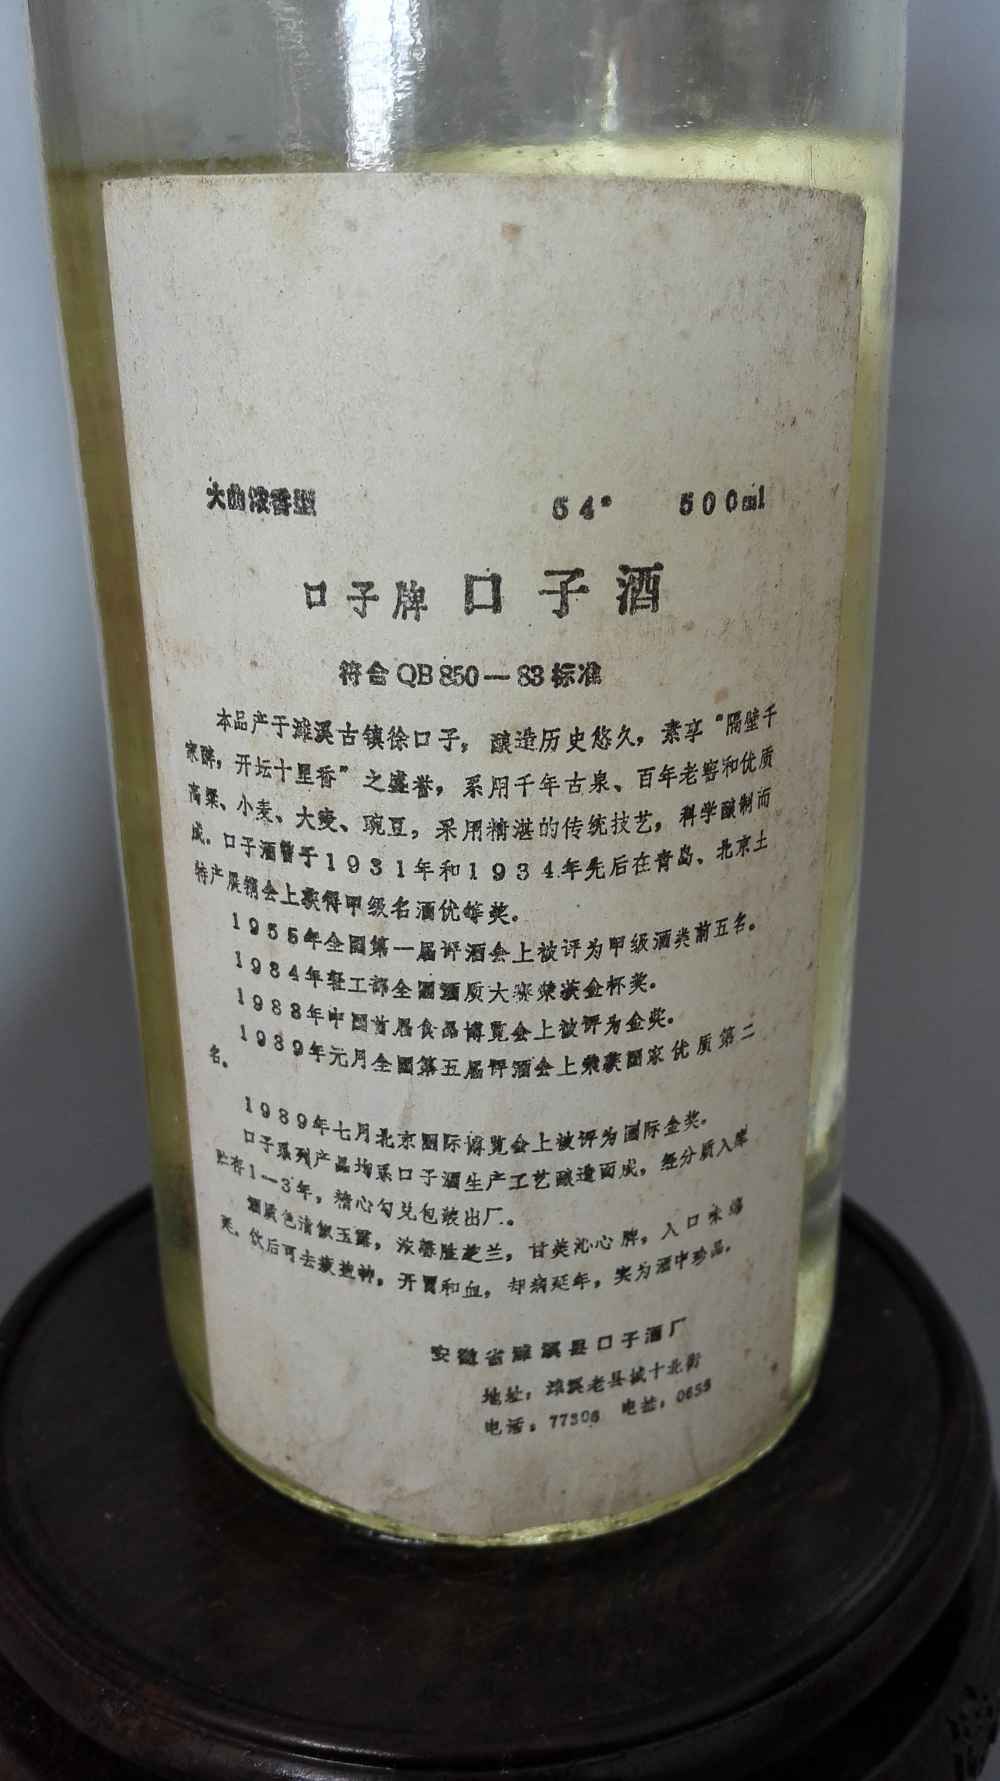 大曲浓香型 54° 500ml
口子牌 口子酒
符合QB850—83标准
本品产于濉溪古镇徐口子，酿造历史悠久，素享“隔壁千
家醉，开坛十里香”之盛誉，系用千年古泉、百年老窖和优质
高粱、小麦、大麦、豌豆，采用精湛的传统技艺，科学酿制而
成。口子酒曾于1931年和1934年先后在青岛、北京土
特产展销会上获得甲级名酒优等奖。
1955年全国第一届评酒会上被评为甲级酒类前五名。
1984年轻工部全国酒质大赛荣获金杯奖。
1988年中国首届食品博览会上被评为金奖。
1989年元月全国第五届评酒会上荣获国家优质第二
名。
1989年七月北京国际博览会上被评为国际金奖。
口子系列产品均系口子酒生产工艺酿造而成，经分质入库
贮存1—3年，精心勾兑包装出厂。
酒质色清似玉露，浓香胜芝兰，甘美沁心脾，入口味绵
爽。饮后可去疲益神，开胃和血，却病延年，实为酒中珍品。
安徽省濉溪县口子酒厂
地址：濉溪老县城十北街
电话：77306 电挂：0655